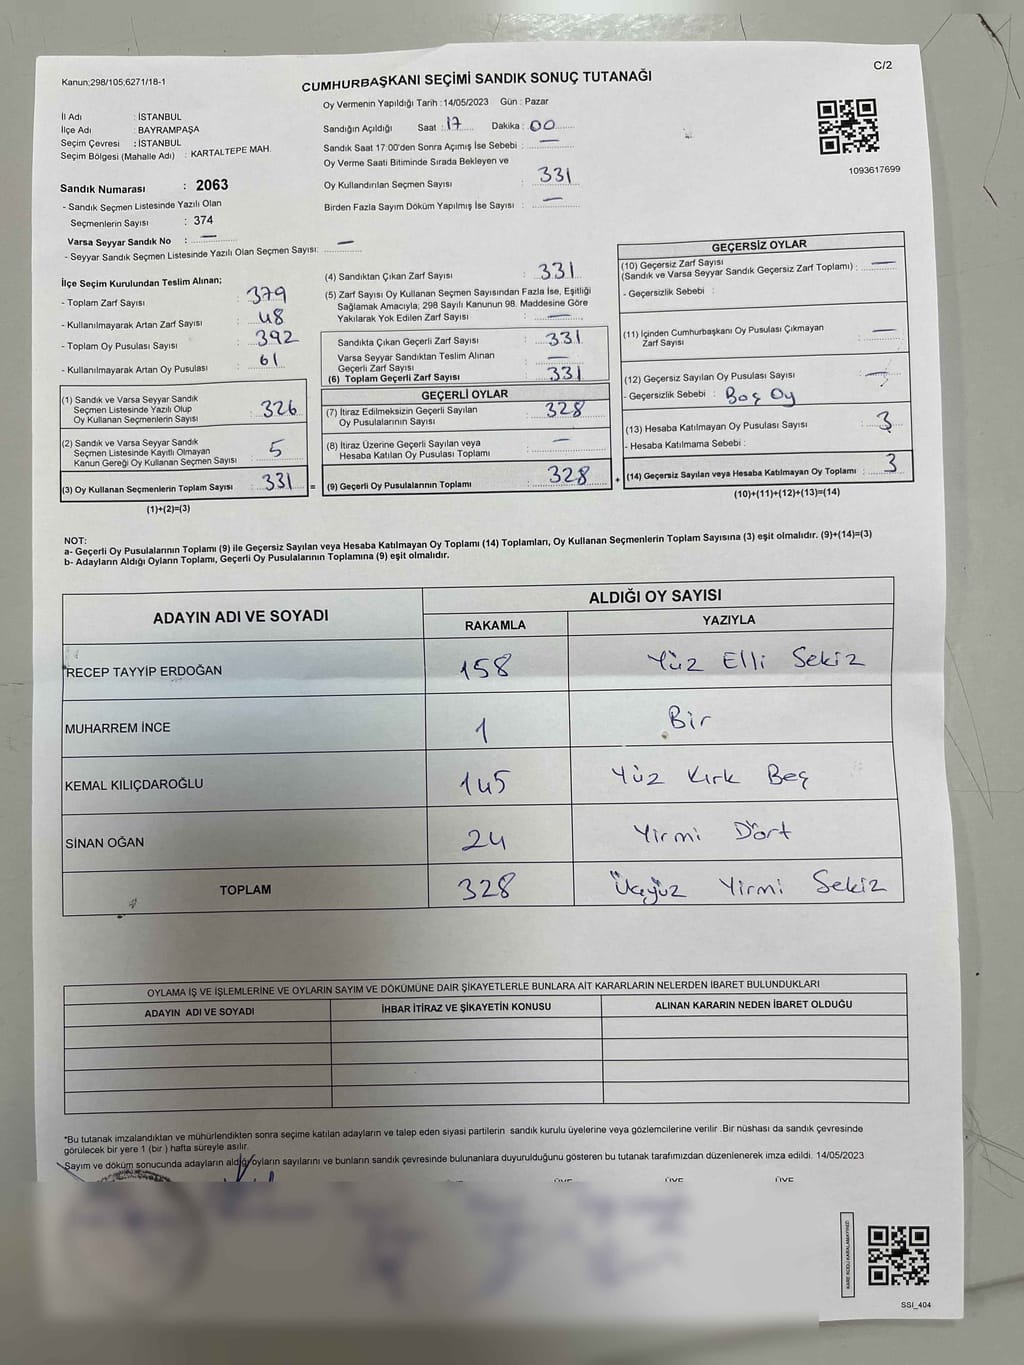 Kanun;298/105;6271/18-1
C/2
CUMHURBAŞKANI SEÇİMİ SANDIK SONUÇ TUTANAĞI
Oy Vermenin Yapıldığı Tarih :14/05/2023 Gün : Pazar
İl Adı : İSTANBUL
İlçe Adı : BAYRAMPAŞA
Seçim Çevresi : İSTANBUL
Seçim Bölgesi (Mahalle Adı) : KARTALTEPE MAH.
Sandık Numarası : 2063
- Sandık Seçmen Listesinde Yazılı Olan
Seçmenlerin Sayısı : 374
Varsa Seyyar Sandık No : —
- Seyyar Sandık Seçmen Listesinde Yazılı Olan Seçmen Sayısı: —
Sandığın Açıldığı Saat : 17 Dakika : 00
Sandık Saat 17:00'den Sonra Açımış İse Sebebi : —
Oy Verme Saati Bitiminde Sırada Bekleyen ve
Oy Kullandırılan Seçmen Sayısı : 331
Birden Fazla Sayım Döküm Yapılmış İse Sayısı : —
1093617699
İlçe Seçim Kurulundan Teslim Alınan;
- Toplam Zarf Sayısı : 379
- Kullanılmayarak Artan Zarf Sayısı : 48
- Toplam Oy Pusulası Sayısı : 392
- Kullanılmayarak Artan Oy Pusulası : 61
(1) Sandık ve Varsa Seyyar Sandık
Seçmen Listesinde Yazılı Olup
Oy Kullanan Seçmenlerin Sayısı : 326
(2) Sandık ve Varsa Seyyar Sandık
Seçmen Listesinde Kayıtlı Olmayan
Kanun Gereği Oy Kullanan Seçmen Sayısı : 5
(3) Oy Kullanan Seçmenlerin Toplam Sayısı : 331 =
(1)+(2)=(3)
(4) Sandıktan Çıkan Zarf Sayısı : 331
(5) Zarf Sayısı Oy Kullanan Seçmen Sayısından Fazla İse, Eşitliği
Sağlamak Amacıyla; 298 Sayılı Kanunun 98. Maddesine Göre
Yakılarak Yok Edilen Zarf Sayısı : —
Sandıkta Çıkan Geçerli Zarf Sayısı : 331
Varsa Seyyar Sandıktan Teslim Alınan
Geçerli Zarf Sayısı : —
(6) Toplam Geçerli Zarf Sayısı : 331
GEÇERLİ OYLAR
(7) İtiraz Edilmeksizin Geçerli Sayılan
Oy Pusulalarının Sayısı : 328
(8) İtiraz Üzerine Geçerli Sayılan veya
Hesaba Katılan Oy Pusulası Toplamı : —
(9) Geçerli Oy Pusulalarının Toplamı : 328 +
GEÇERSİZ OYLAR
(10) Geçersiz Zarf Sayısı
(Sandık ve Varsa Seyyar Sandık Geçersiz Zarf Toplamı) : —
- Geçersizlik Sebebi :
(11) İçinden Cumhurbaşkanı Oy Pusulası Çıkmayan
Zarf Sayısı : —
(12) Geçersiz Sayılan Oy Pusulası Sayısı : —
- Geçersizlik Sebebi : Boş Oy
(13) Hesaba Katılmayan Oy Pusulası Sayısı : 3
- Hesaba Katılmama Sebebi :
(14) Geçersiz Sayılan veya Hesaba Katılmayan Oy Toplamı : 3
(10)+(11)+(12)+(13)=(14)
NOT:
a- Geçerli Oy Pusulalarının Toplamı (9) ile Geçersiz Sayılan veya Hesaba Katılmayan Oy Toplamı (14) Toplamları, Oy Kullanan Seçmenlerin Toplam Sayısına (3) eşit olmalıdır. (9)+(14)=(3)
b- Adayların Aldığı Oyların Toplamı, Geçerli Oy Pusulalarının Toplamına (9) eşit olmalıdır.
ADAYIN ADI VE SOYADI
ALDIĞI OY SAYISI
RAKAMLA YAZIYLA
RECEP TAYYİP ERDOĞAN 158 Yüz Elli Sekiz
MUHARREM İNCE 1 Bir
KEMAL KILIÇDAROĞLU 145 Yüz Kırk Beş
SİNAN OĞAN 24 Yirmi Dört
TOPLAM 328 Üçyüz Yirmi Sekiz
OYLAMA İŞ VE İŞLEMLERİNE VE OYLARIN SAYIM VE DÖKÜMÜNE DAİR ŞİKAYETLERLE BUNLARA AİT KARARLARIN NELERDEN İBARET BULUNDUKLARI
ADAYIN ADI VE SOYADI İHBAR İTİRAZ VE ŞİKAYETİN KONUSU ALINAN KARARIN NEDEN İBARET OLDUĞU
*Bu tutanak imzalandıktan ve mühürlendikten sonra seçime katılan adayların ve talep eden siyasi partilerin sandık kurulu üyelerine veya gözlemcilerine verilir .Bir nüshası da sandık çevresinde
görülecek bir yere 1 (bir ) hafta süreyle asılır.
Sayım ve döküm sonucunda adayların aldığı oyların sayılarını ve bunların sandık çevresinde bulunanlara duyurulduğunu gösteren bu tutanak tarafımızdan düzenlenerek imza edildi. 14/05/2023
ÜYE ÜYE ÜYE
KARE KODU KARALAMAYINIZ!
SSI_404